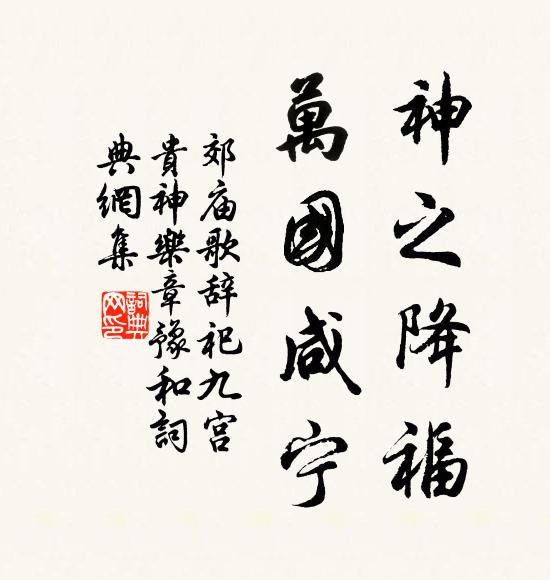 神之降福
萬國咸宁
郊庙歌辞祀九宫
貴神樂章豫和詞
典網集
詞典
网印